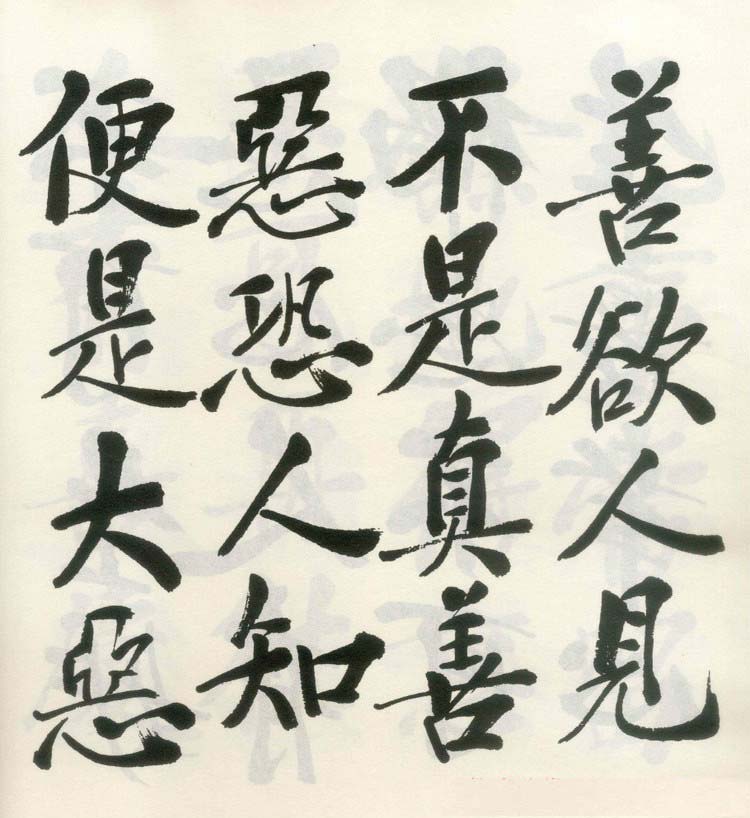 善欲人見
不是真善
惡恐人知
便是大惡